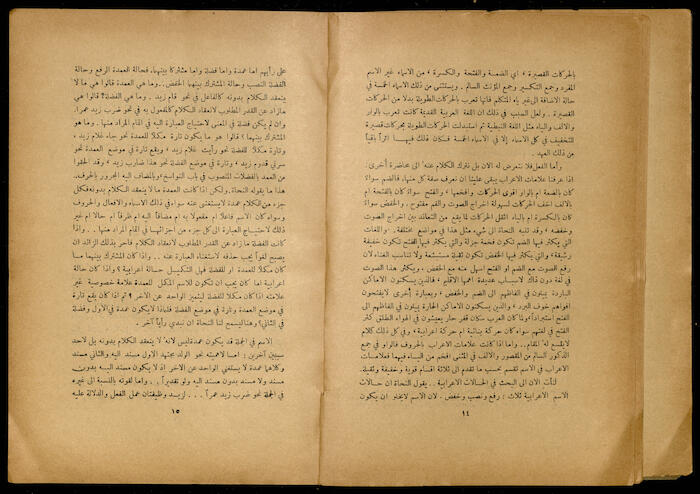 بالحركات القصيرة ، اي الضمة والفتحة والكسرة ، من الاسماء غير الاسم
المفرد وجمع التكسير وجمع المؤنث السالم . ويستثنى من ذلك الاسماء الخمسة في
حالة الاضافة الى غير ياء المتكلم فانها تعرب بالحركات الطويلة بدلا من الحركات
القصيرة . ولعل السبب في ذلك ان اللغة العربية القديمة كانت تعرب بالواو
والالف والياء مثل اللغة النبطية ثم استبدلت الحركات الطويلة بحركات قصيرة
للتخفيف في كل الاسماء إلا في الاسماء الخمسة فكان ذلك فيهـا اثراً باقياً
من ذلك العهد .
وأما الفعل فلا نتعرض له الان بل نترك الكلام عنه الى محاضرة اخرى .
اذا عرفنا علامات الاعراب يبقى علينا ان نعرف صفة كل منها، فالضم سواء
كان بالضمة ام بالواو اقوى الحركات وافخمها ، والفتح سواء كان بالفتحة ام
بالالف اخف الحركات لسهولة اخراج الصوت والفم مفتوح . والخفض سواء
كان بالكسرة ام بالياء اثقل الحركات لما يقع من التعاند بين اخراج الصوت
وخفضه ، وقد تنبه النحاة الى شيء مثل هذا في مواضع مختلفة. واللغات
التي يكثر فيها الضم تكون فخمة جزلة والتي يكثر فيها الفتح تكون خفيفة
رشيقة ، والتي يكثر فيها الخفض تكون ثقيلة مستبشعة ولا تناسب الغناء لان
رفع الصوت مع الضم او الفتح اسهل منه مع الخفض . ويكثر هذا الصوت
في لغة دون ذاك لاسباب عديدة اهمها الاقليم ، فالذين يسكنون الاماكن
الباردة يميلون في الفاظهم الى الضم والخفض ، وبعبارة أخرى لايفتحون
افواههم خوف البرد ، والذين يسكنون الاماكن الحارة يميلون في الفاظهم الى
الفتح استبراداً ولما كان العرب سكان قفر حار يعيشون في الهواء الطلق كثر
الفتح في لغتهم سواء كان حركة بنائية ام حركة اعرابية ، وفي كل ذلك كلام
لايتسع له المقام .. واما اذا كانت علامات الاعراب حروف فالواو في جمع
الذكور السالم من المقصور والالف في المثنى افخم من الياء فيهما فعلامات
الاعراب في الاسم تقسم بحسب ما تقدم الى ثلاثة اقسام قوية وخفيفة وثقيلة.
لنأت الان الى البحث في الحالات الاعرابية .. يقول النحاة ان حالات
الاسم الاعرابية ثلاث : رفع ونصب وخفض . لان الاسم لايخلو ان يكون
١٤
على رأيهم اما عمدة واما فضلة واما مشتركا بينهما، فحالة العمدة الرفع وحالة
الفضلة النصب وحالة المشترك بينهما الخفض .. وما هي العمدة قالوا هي ما لا
ينعقد الكلام بدونه كالفاعل في نحو قام زيد . وما هي الفضلة؟ قالوا هي
مازاد عن القدر المطلوب لانعقاد الكلام كالمفعول به في نحو ضرب زيد عمرا.
وان لم يكن فضلة في المعنى لاحتياج العبارة اليه في اتمام المراد منها . وما هو
المشترك بينهما ؟ قالوا هو ما يكون تارة مكملا للعمدة نحو جاء غلام زيد ،
وتارة مكملاً للفضلة نحو رأيت غلام زيد ، ويقع تارة في موضع العمدة نحو
سرني قدوم زيد ، وتارة في موضع الفضلة نحو هذا ضارب زيد ، وقد الحقوا
من العمد بالفضلات المنصوب في باب النواسخ ، وبالمضاف اليه المجرور بالحرف.
هذا ما يقوله النحاة . ولكن اذا كانت العمدة ما لا ينعقد الكلام بدونه فكل
جزء من الكلام عمدة لايستغنى عنه سواء في ذلك الاسماء والافعال والحروف
وسواء كان الاسم فاعلاً ام مفعولا به ام مضافاً اليه ام ظرفاً ام حالا ام غير
ذلك لاحتيـاج العبارة الى كل جزء من اجزائها في اتمام المراد منها .. واذا
كانت الفضلة ما زاد عن القدر المطلوب لانعقاد الكلام فأحر بذلك الزائد ان
يصبح لغواً يجب حذفه لاستغناء العبارة عنه .. واذا كان المشترك بينهما ما
كان مكملاً للعمدة او للفضلة فهل التكميـل حـالة اعرابية ؟ واذا كان حالة
اعرابية اما كان يجب ان تكون للاسم المكمل للعمدة علامة خصوصية غير
علامته اذا كان مكملا للفضلة ليتميز الواحد عن الآخر ؟ ثم اذا كان يقع تارة
في موضع العمدة وتارة في موضع الفضلة فلماذا لايكون عمدة في الاول وفضلة
في الثاني؟ وهنا ليسمح لنا النحاة ان نبدي رأياً آخر .
الاسم في الجملة قد يكون عمدة ليس لانه لا ينعقد الكلام بدونه بل لاحد
سببين آخرين : اما لاهميته نحو الولد يجتهد الاول مسند اليه والثاني مسند
وكلاهما عمدة لا يستغنى الواحد عن الاخر اذ لا يكون مسند اليـه بدون
مسند ولا مسند بدون مسند اليه ولو تقديراً .. واما لقوته بالنسبة الى غيره
في الجملة نحو ضرب زيد عمراً ... لزيـد وظيفتان عمل الفعل والدلالة عليه
١٥